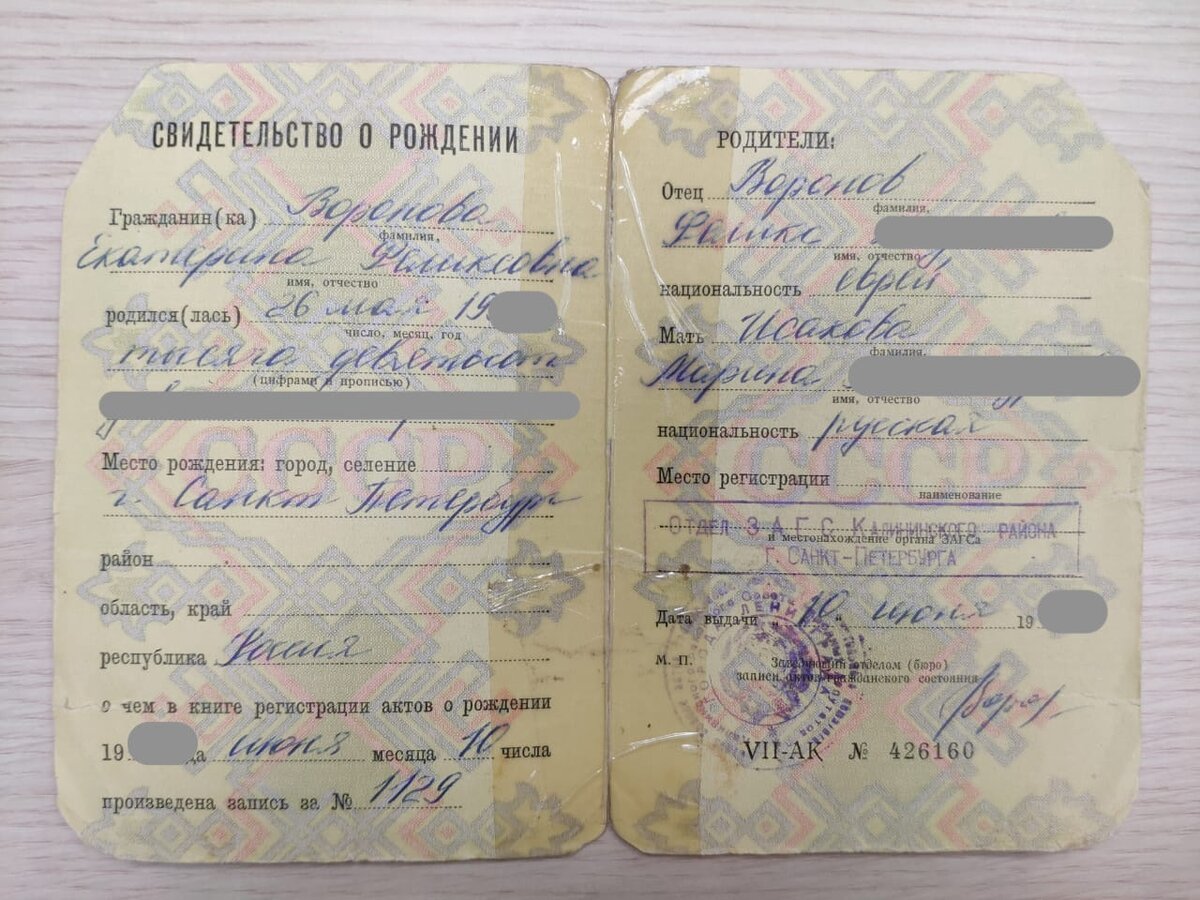 СВИДЕТЕЛЬСТВО О РОЖДЕНИИ
Гражданин(ка) Воронова
фамилия,
Екатерина Феликсовна
имя, отчество
родился(лась) 26 мая 19
число, месяц, год
тысяча девятьсот
(цифрами и прописью)
СССР
Место рождения: город, селение
г. Санкт Петербург
район
область, край
республика Россия
о чем в книге регистрации актов о рождении
19 да июня месяца 10 числа
произведена запись за № 1129
РОДИТЕЛИ:
Отец Воронов
фамилия,
Феликс
имя, отчество
национальность еврей
Мать Исакова
фамилия,
Марина
имя, отчество
национальность русская
СССР
Место регистрации
наименование
ОТДЕЛ ЗАГС КАЛИНИНСКОГО РАЙОНА
и местонахождение органа ЗАГСа
Г. САНКТ-ПЕТЕРБУРГА
Дата выдачи „ 10 " июня 19
М. П. Заведующий отделом (бюро)
записи актов гражданского состояния
VII-АК № 426160